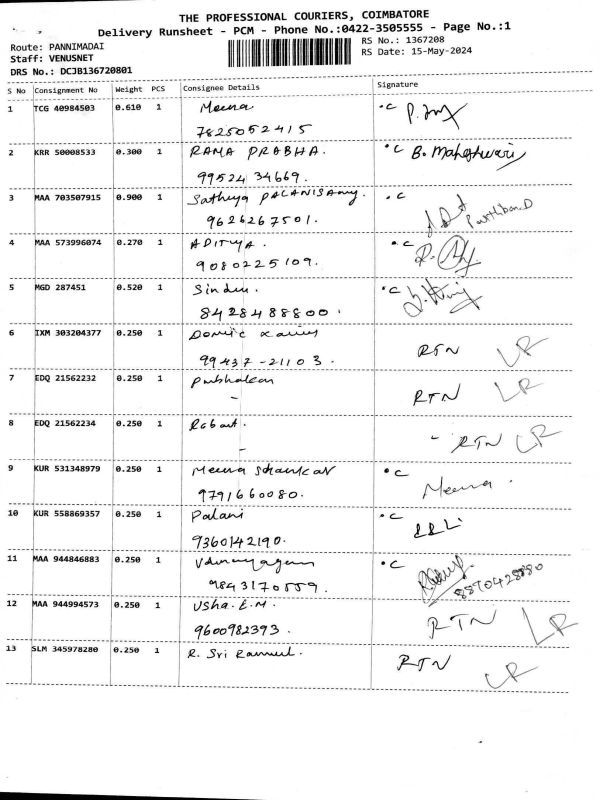 THE PROFESSIONAL COURIERS, COIMBATORE
Delivery Runsheet - PCM - Phone No.:0422-3505555 - Page No.:1
Route: PANNIMADAI
RS No.: 1367208
Staff: VENUSNET
RS Date: 15-May-2024
DRS No.: DCJB136720801
S No Consignment No Weight PCS Consignee Details Signature
1 TCG 40984503 0.610 1 Meena °C
7825052415
2 KRR 50008533 0.300 1 RAMA PRABHA. °C B. Maheshwari
99524 34669.
3 MAA 703507915 0.900 1 Sathya PALANISAmy. °C
9626267501. Parthiban.D
4 MAA 573996074 0.270 1 ADITHYA. °C
9080225109.
5 MGD 287451 0.520 1 Sindhu. °C
8428488800.
6 IXM 303204377 0.250 1 RTN LR
99437-21103.
7 EDQ 21562232 0.250 1 Prabhakaran RTN LR
-
8 EDQ 21562234 0.250 1 Robert. - RTN LR
-
9 KUR 531348979 0.250 1 Meena Shankar °C
9791660080. Meena.
10 KUR 558869357 0.250 1 Palani °C
9360142190.
11 MAA 944846883 0.250 1 °C
9843170559. 8870428880
12 MAA 944994573 0.250 1 Usha.E.M. RTN LR
9600982393.
13 SLM 345978280 0.250 1 R. Sri RTN LR